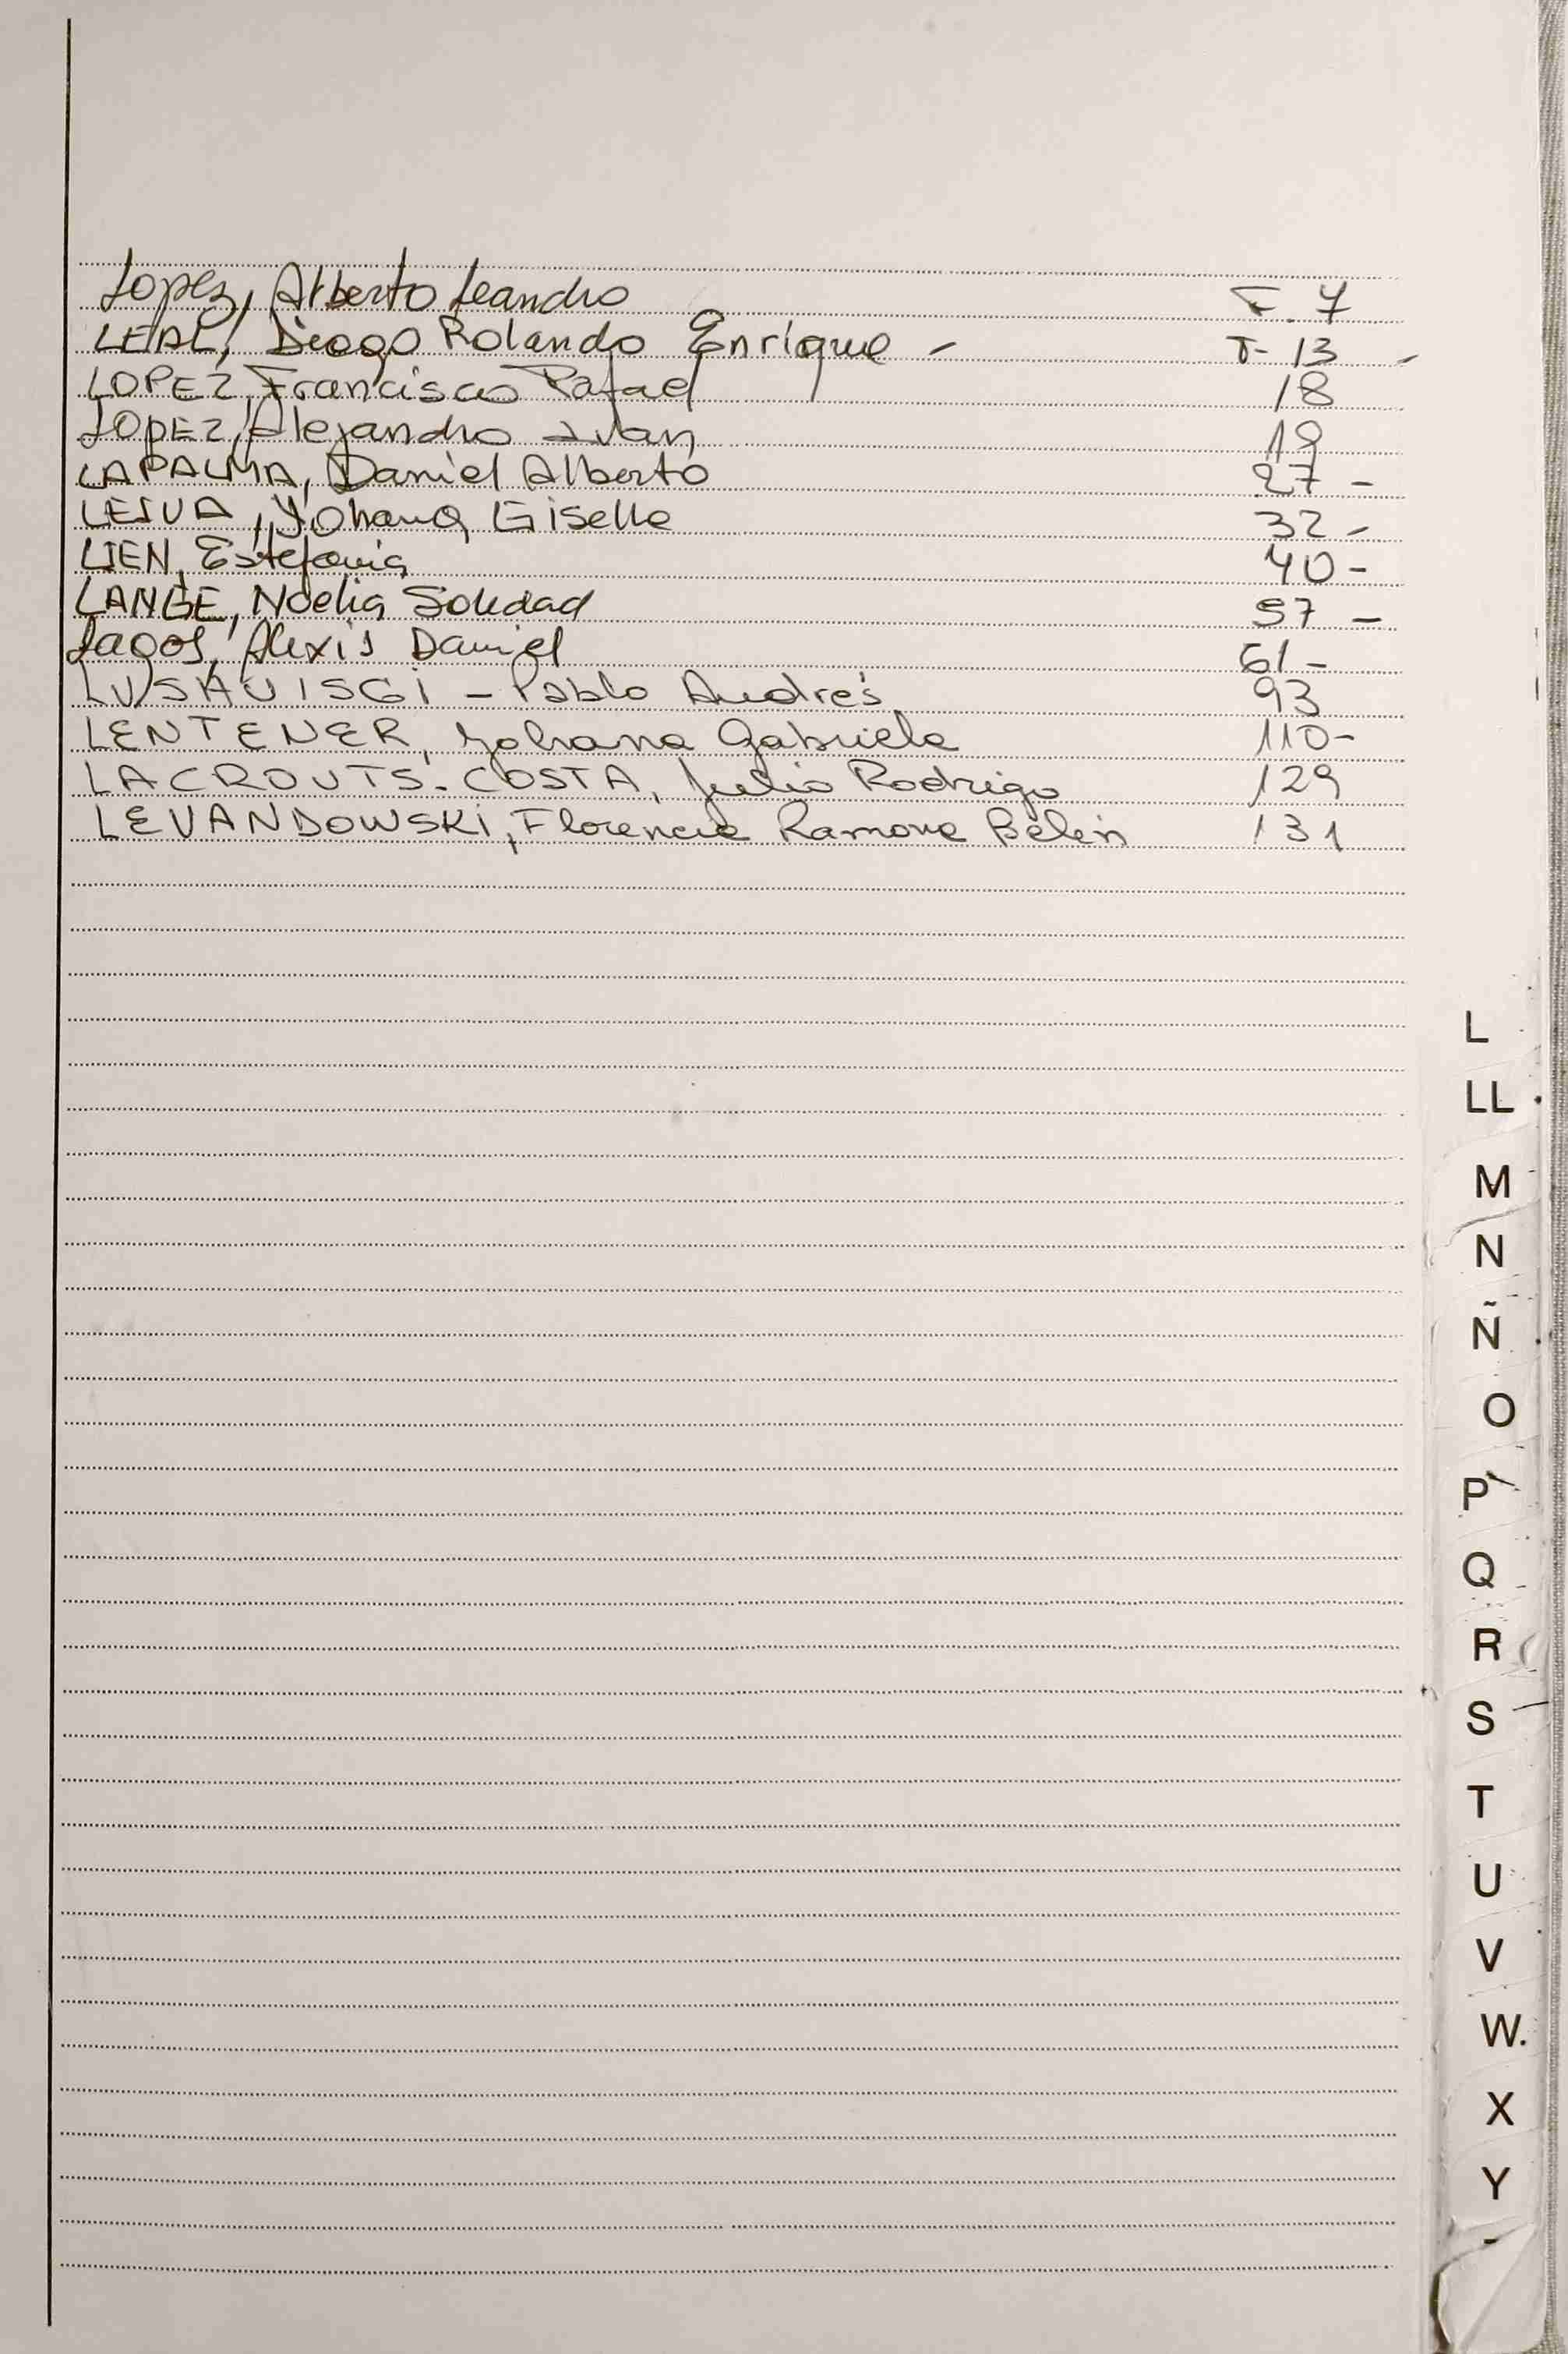 Lopez, Alberto Leandro F. 7
LEAL, Diego Rolando Enrique - F- 13 -
LOPEZ, Francisco Rafael 18
LOPEZ, Alejandro Ivan 19
LAPALMA, Daniel Alberto 27 -
LEIVA, Yohana Giselle 32 -
LIEN, Estefania 40 -
LANGE, Noelia Soledad 57 -
Lagos, Alexis Daniel 61 -
Pablo Andrés 93
LENTENER, Yohana Gabriela 110-
LACROUTS-COSTA, Julio Rodrigo 129
LEVANDOWSKI, Florencia Ramona Belén 131
L
LL
M
N
Ñ
O
P
Q
R
S
T
U
V
W
X
Y